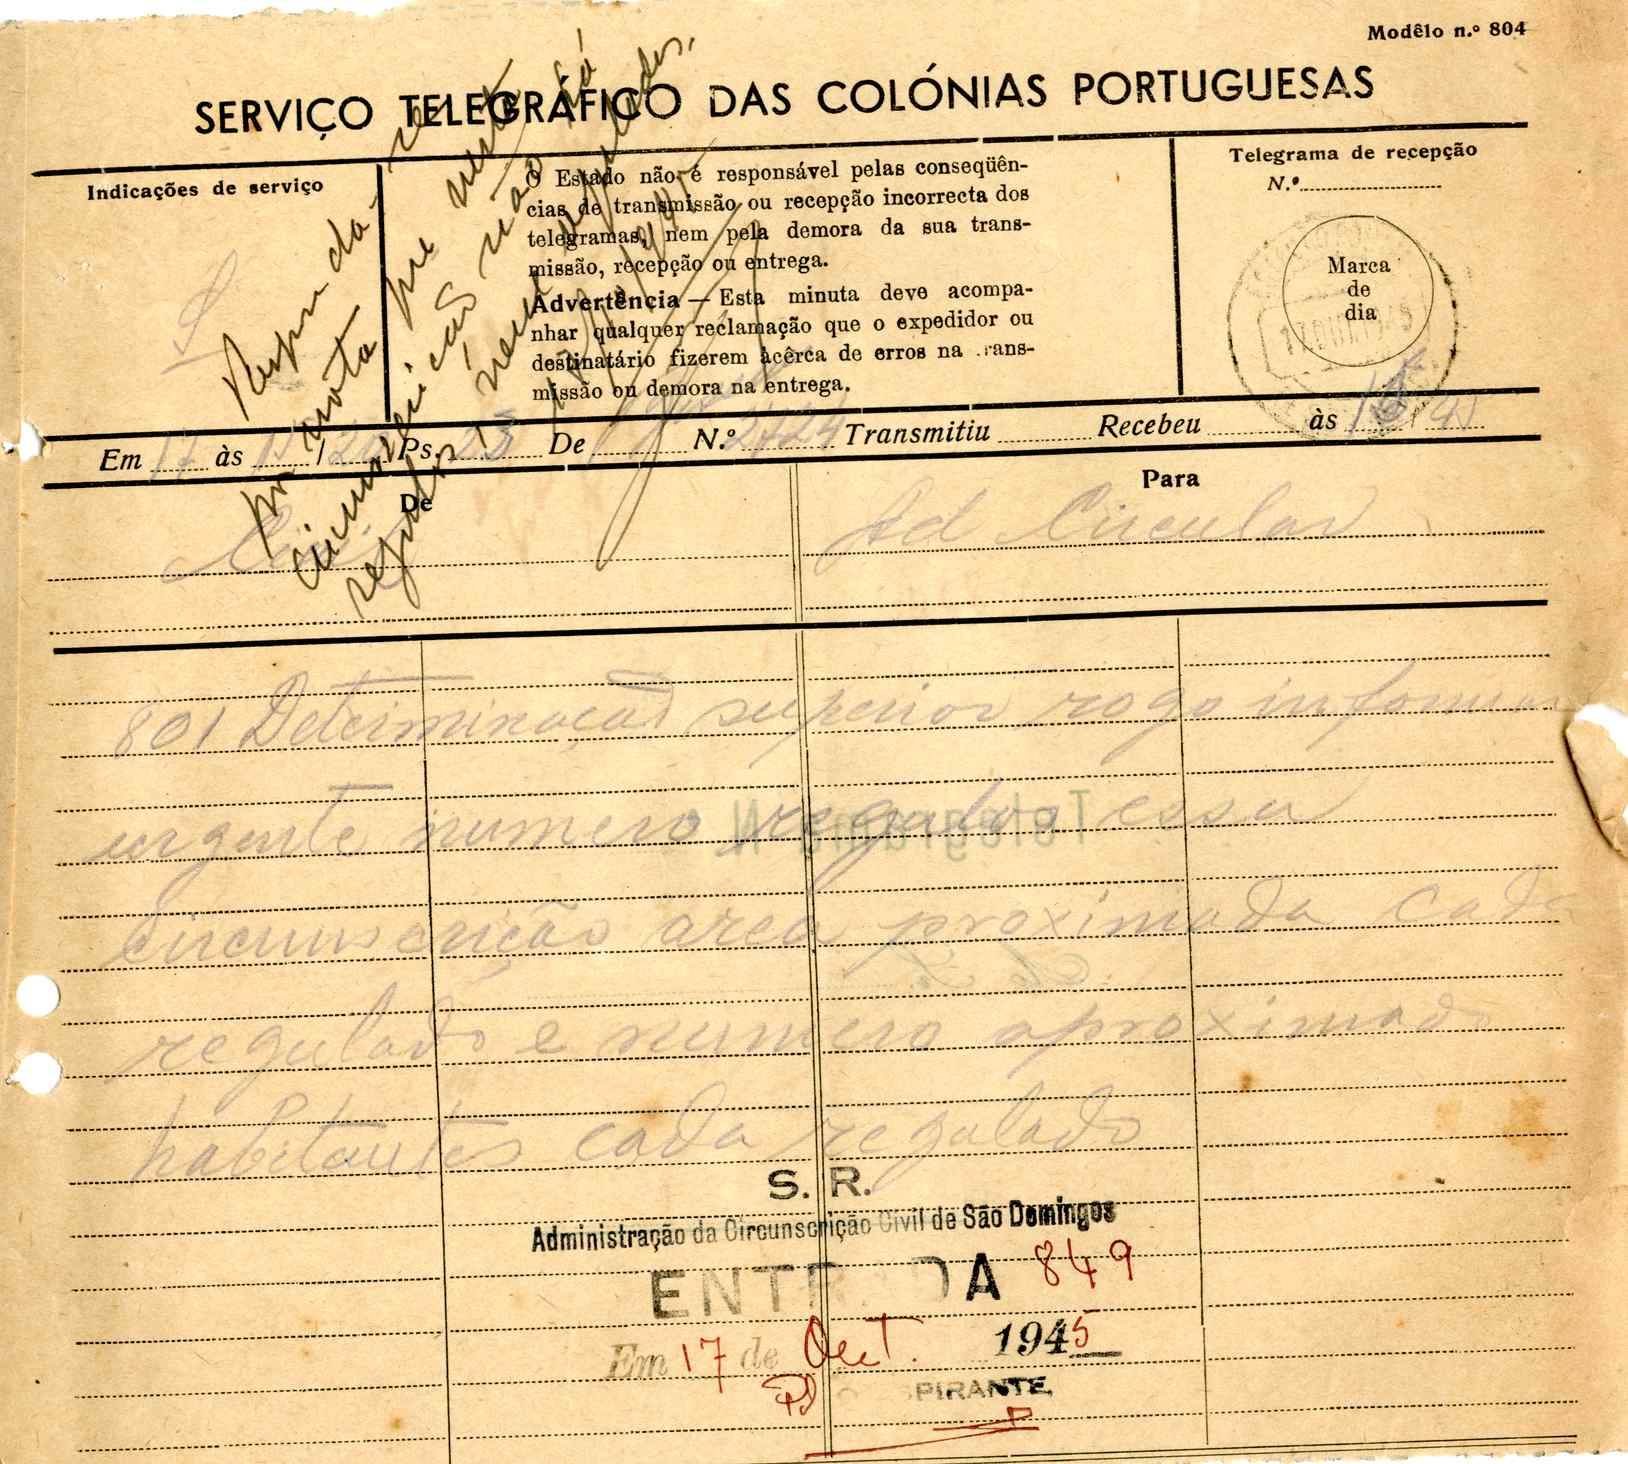 Modêlo n.º 804
SERVIÇO TELEGRÁFICO DAS COLÓNIAS PORTUGUESAS
Indicações de serviço
O Estado não é responsável pelas conseqüên-
cias de transmissão ou recepção incorrecta dos
telegramas, nem pela demora da sua trans-
missão, recepção ou entrega.
Advertência — Esta minuta deve acompa-
nhar qualquer reclamação que o expedidor ou
destinatário fizerem àcêrca de erros na trans-
missão ou demora na entrega.
Telegrama de recepção
N.º
Marca
de
dia
por nota
que nesta
circunscrição não há
regulos, nem regulados.
Em 17 às Ps. 23 De N.º 2424 Transmitiu Recebeu às
De
Para
Civil
Ad Circular
801 Determinação superior rogo informar
urgente numero regulados essa
circunscrição area proximada cada
regulado e numero aproximado
habitantes cada regulado
Telegrama N
S. R.
Administração da Circunscrição Civil de São Domingos
ENTRADA 849
Em 17 de Out. 1945
O ASPIRANTE,